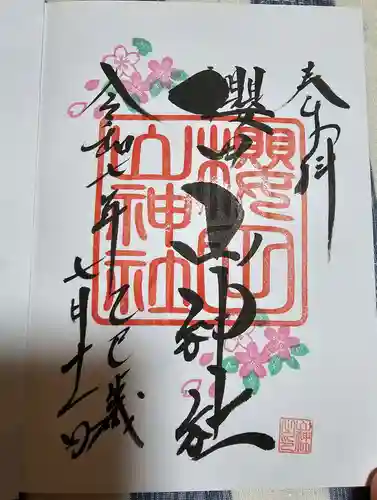 奉拝
櫻田山神社
令和七年乙巳歳
七月十一日
櫻田山神社